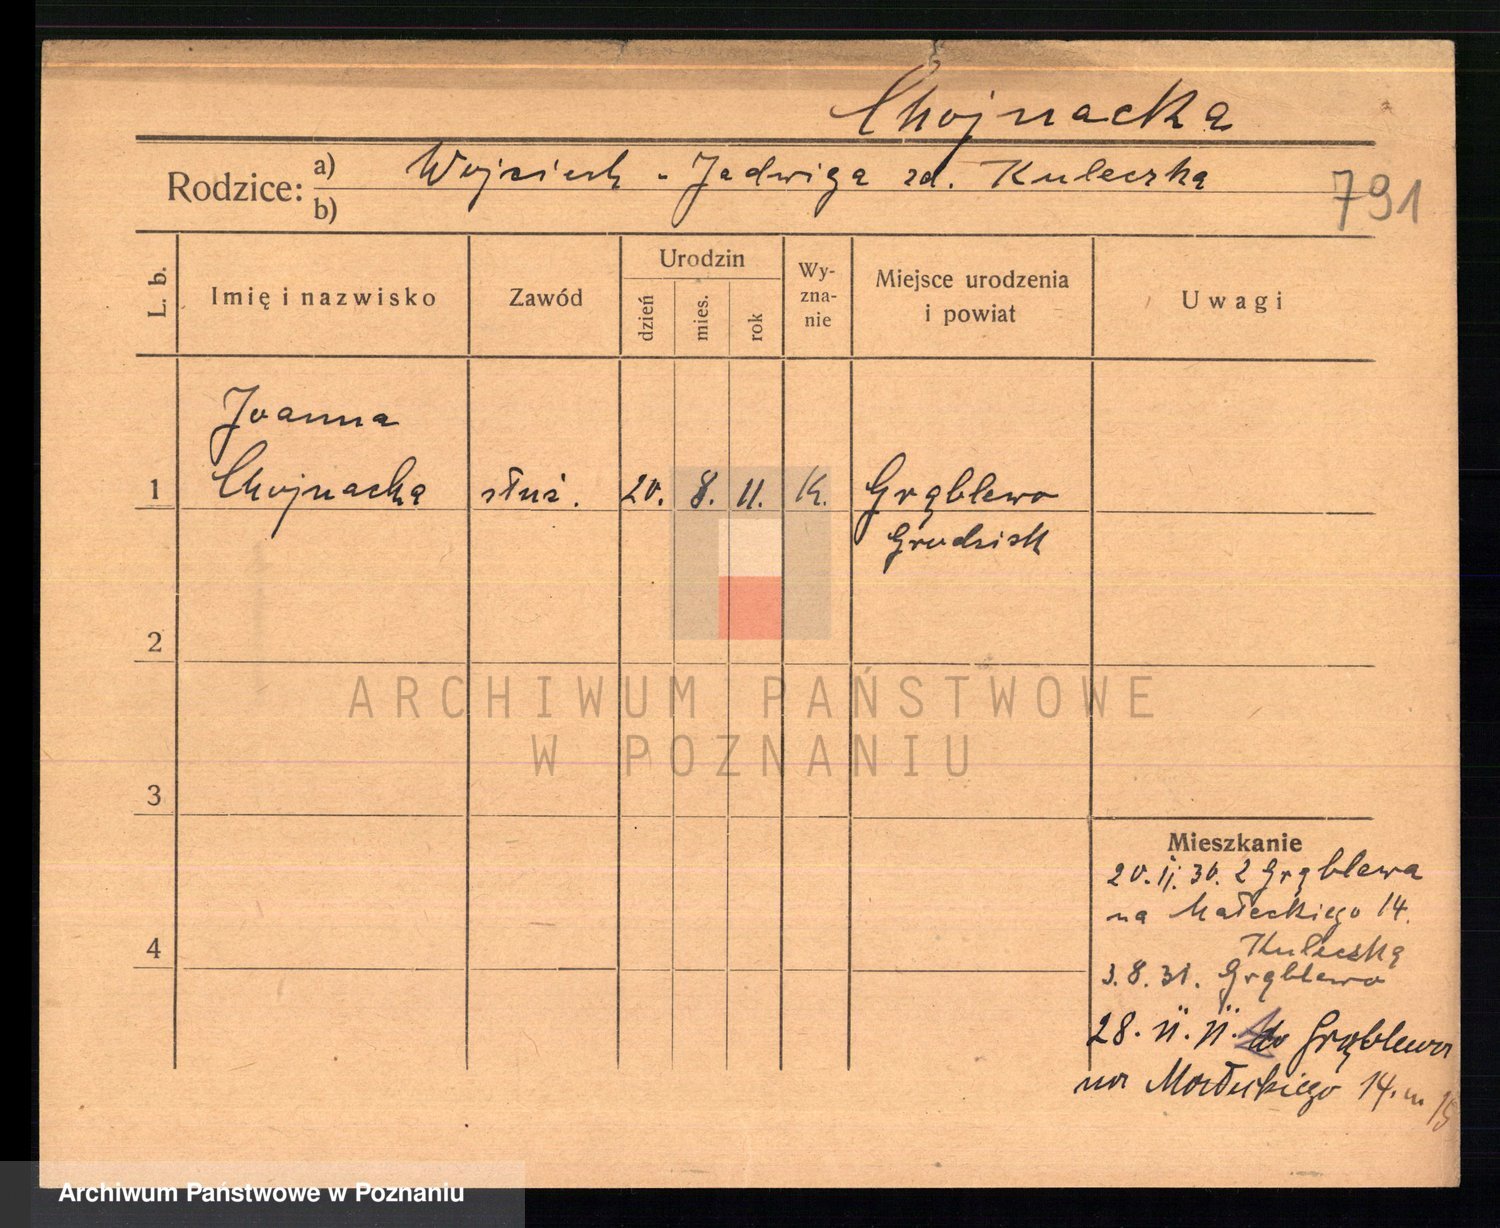 Chojnacka
Rodzice: a) Wojciech - Jadwiga zd. Kuleczka
b)
791
L. b.
Imię i nazwisko
Zawód
Urodzin
dzień
mies.
rok
Wy-
zna-
nie
Miejsce urodzenia
i powiat
Uwagi
Joanna
1 Chojnacka służ. 20. 8. 11. K. Grąblewo
Grodzisk
2
3
4
ARCHIWUM PAŃSTWOWE
W POZNANIU
Mieszkanie
20. II. 30. z Grąblewa
na Małeckiego 14.
Kuleczka
3. 8. 31. Grąblewo
28. Grąblewa
na Małeckiego 14. m 15
Archiwum Państwowe w Poznaniu